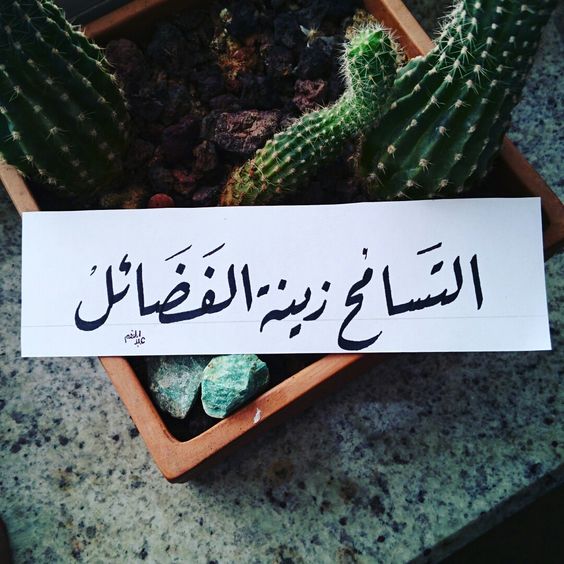 التَسَامُح زينة الفَضَائلُ
عبد المنعم